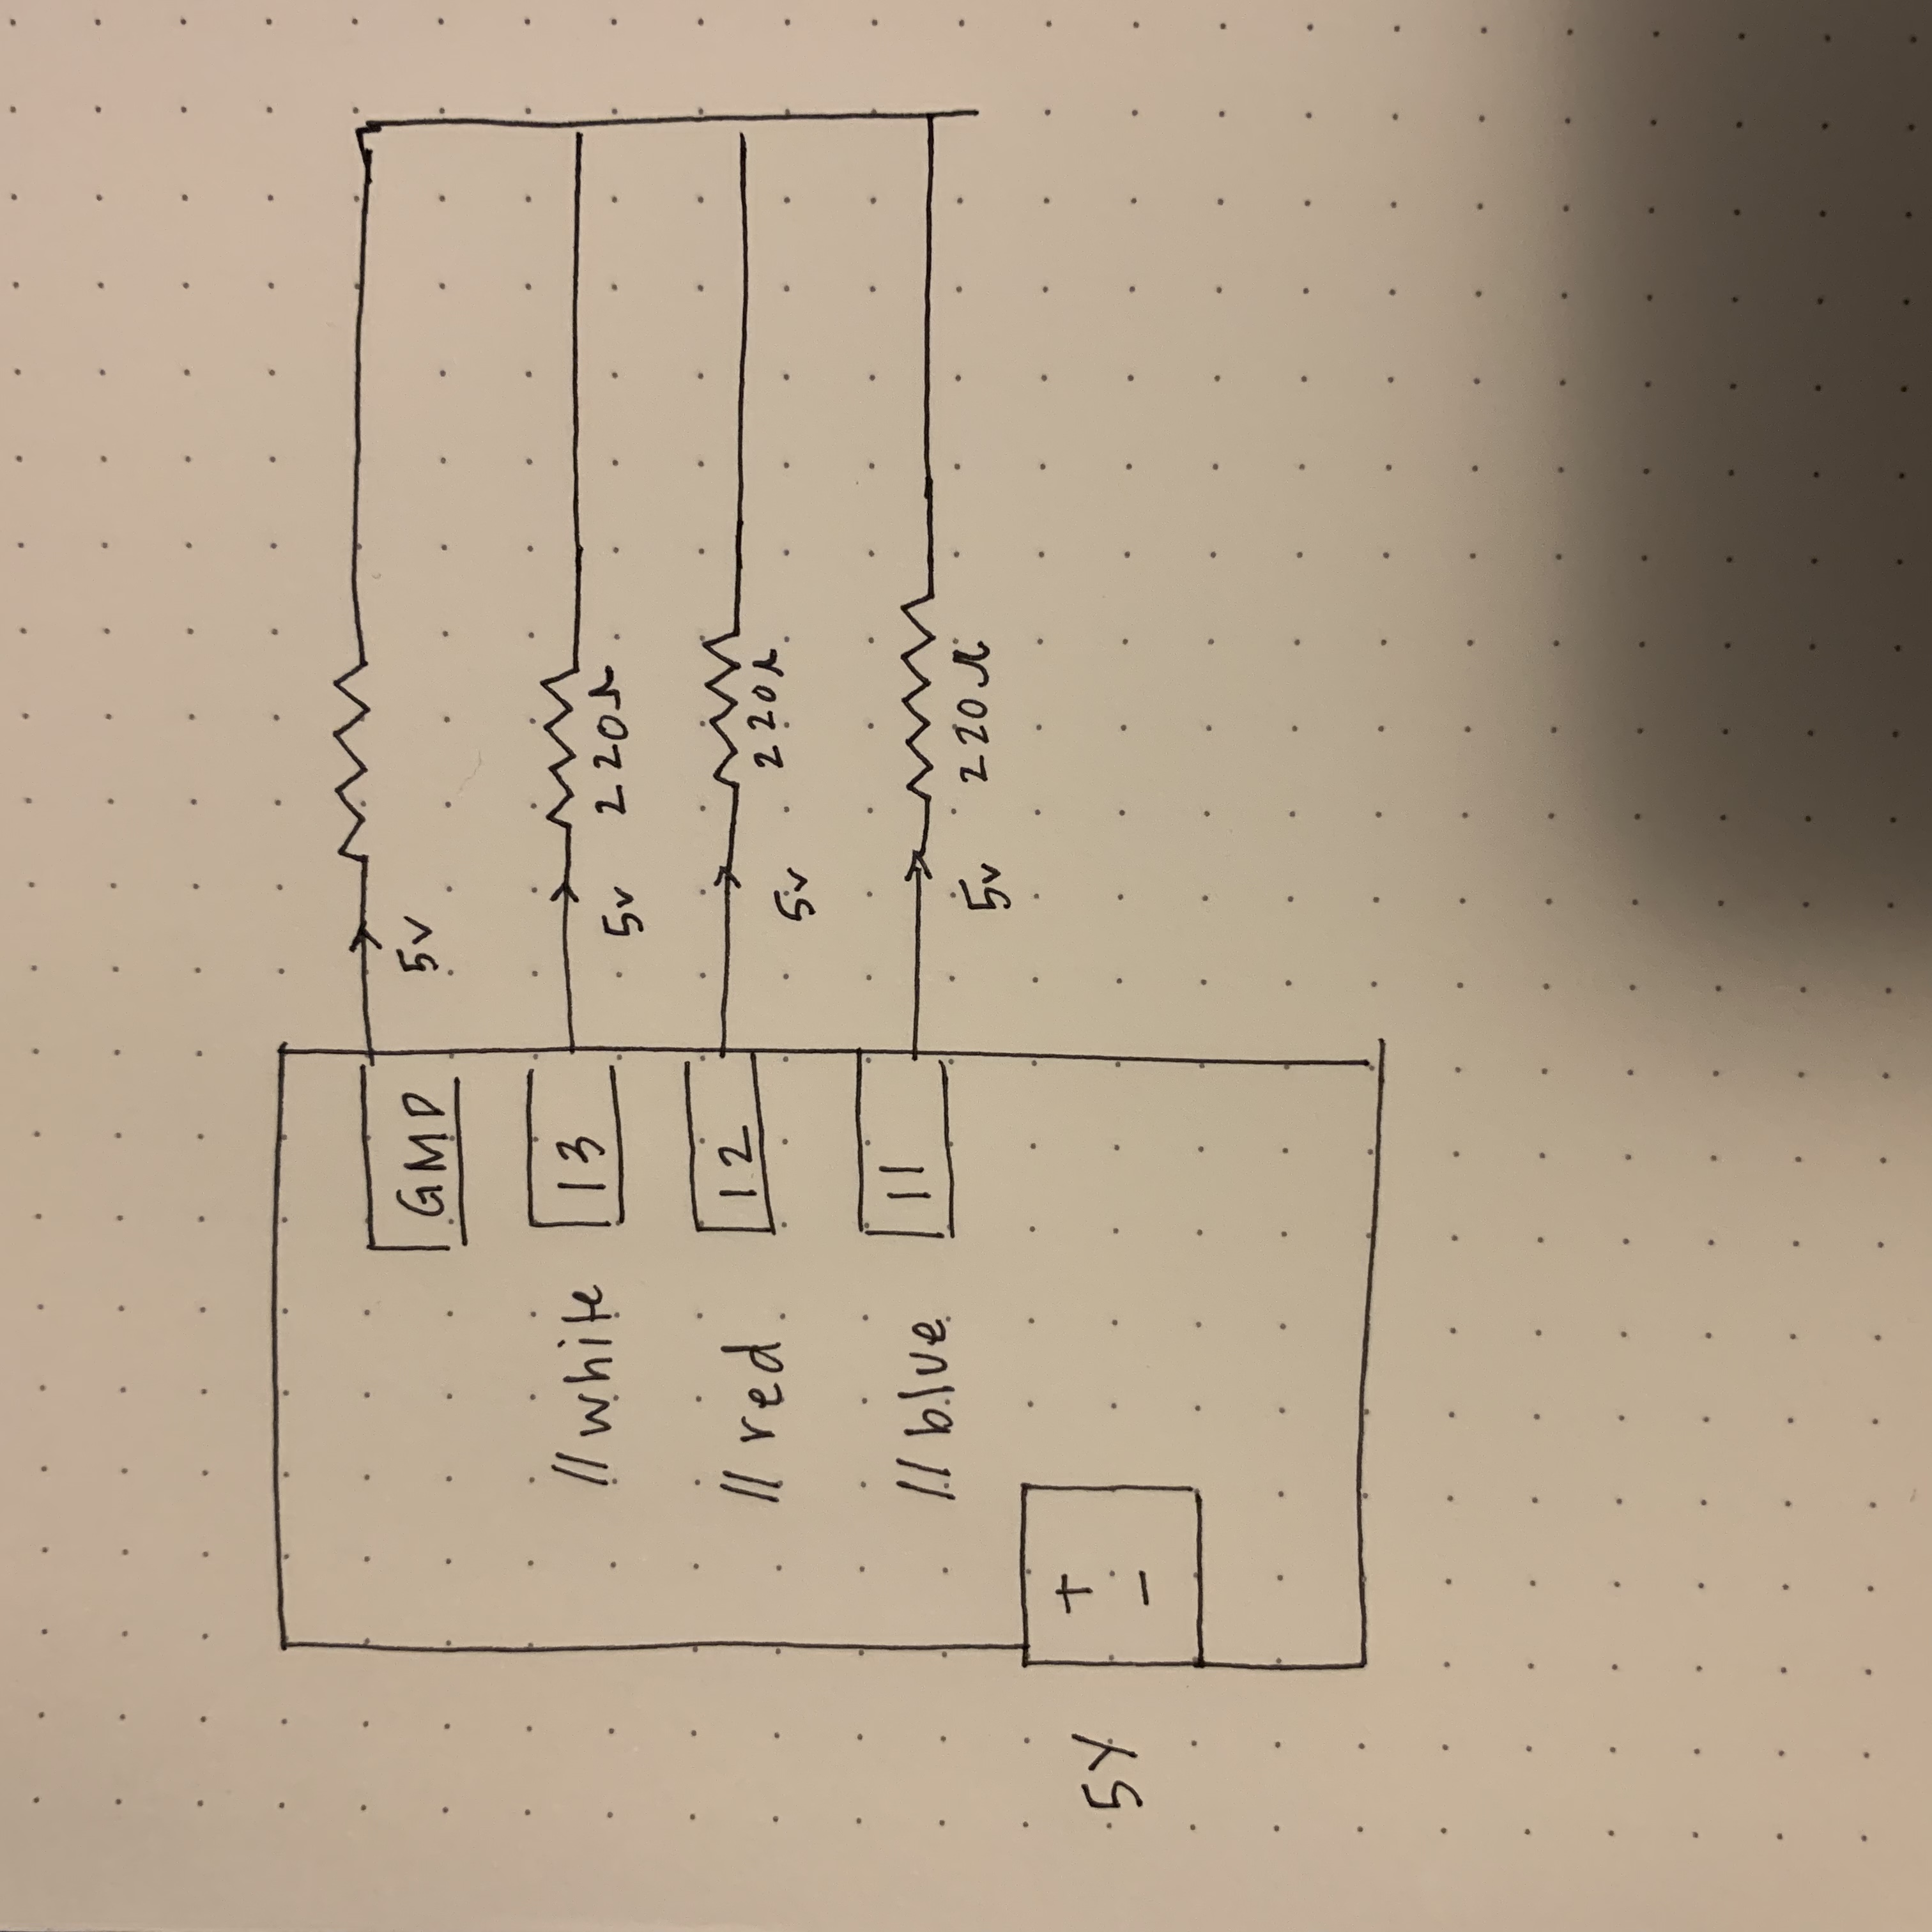 GMD
5v
//white 13
5v 220Ω
//red 12
5v 220Ω
//blue 11
5v 220Ω
5V
+
-